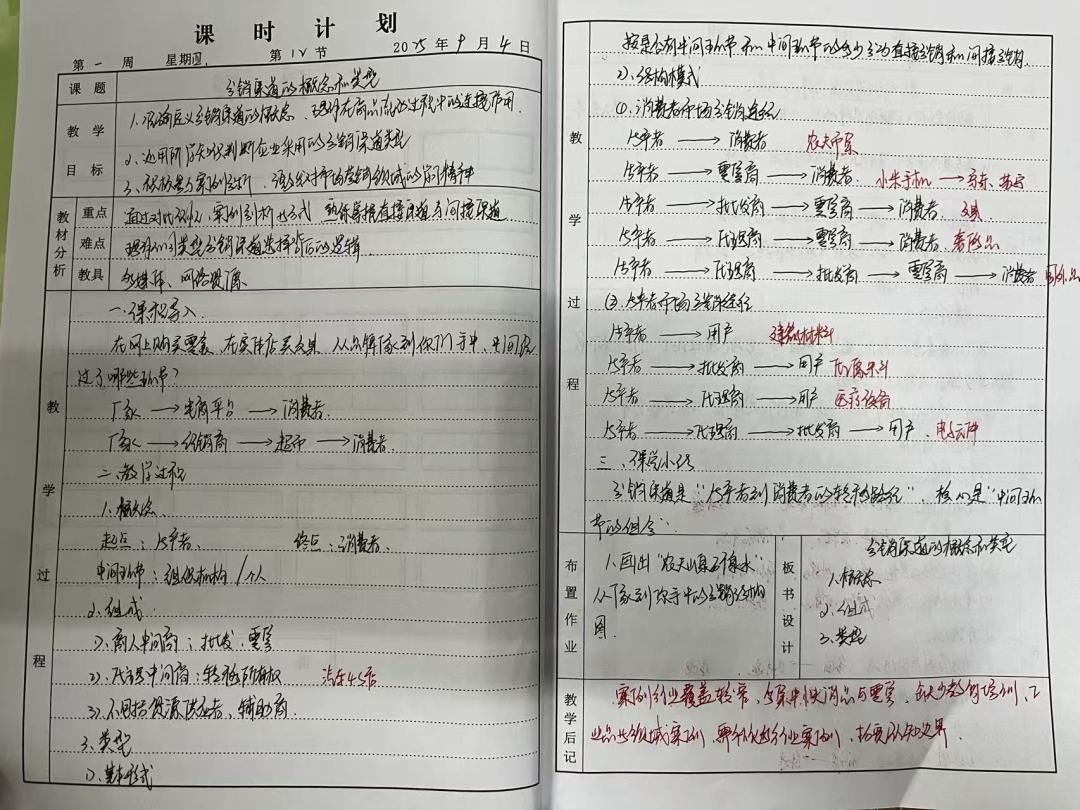 课时计划
第一周 星期四 第1V节 2025年9月4日
课题 分销渠道的概念和类型
教学目标 1.准确定义分销渠道的概念、理解在商品流通过程中的连接作用.
2、运用所学知识判断企业采用的分销渠道类型
3、积极参与案例分析、激发对市场营销领域的学习精神
教材分析
重点 通过对比列表、案例剖析等方式 熟练掌握直接渠道与间接渠道
难点 理解不同类型分销渠道选择背后的逻辑
教具 多媒体、网络资源
教学过程
一.课程导入
在网上购买零食、在实体店买文具 从品牌厂家到你们手中、中间经
过了哪些环节?
厂家 → 电商平台 → 消费者.
厂家 → 经销商 → 超市 → 消费者.
二.教学过程
1.概念
起点:生产者、 终点:消费者.
中间环节:组织机构/个人
2.组成
1)、商人中间商:批发、零售
2)、代理中间商:转移所有权 汽车4S店
3)、不同指资源供应者、辅助商
3、类型
1)、基本形式
按是否有中间环节和中间环节的多少分为直接分销和间接分销.
2)、结构模式
①.消费者市场分销途径
生产者 → 消费者 农夫市集
生产者 → 零售商 → 消费者. 小米手机 → 京东、苏宁
生产者 → 批发商 → 零售商 → 消费者. 文具
生产者 → 代理商 → 零售商 → 消费者. 奢侈品
生产者 → 代理商 → 批发商 → 零售商 → 消费者 国外品
②.生产者市场分销途径
生产者 → 用户 建筑材料
生产者 → 批发商 → 用户 化工原料
生产者 → 代理商 → 用户 医疗设备
生产者 → 代理商 → 批发商 → 用户. 电子元件
三、课堂小结
分销渠道是“生产者到消费者的转移路径”.核心是“中间环
节的组合”.
布置作业
1.画出“农夫山泉矿泉水”
从厂家到你手中的分销结构
图.
板书设计
分销渠道的概念和类型
1.概念
2.组成
3.类型
教学后记
案例行业覆盖较窄、多集中快消品与零售、缺少教育培训、工
业品等领域案例、需补充跨行业案例、拓宽认知边界.